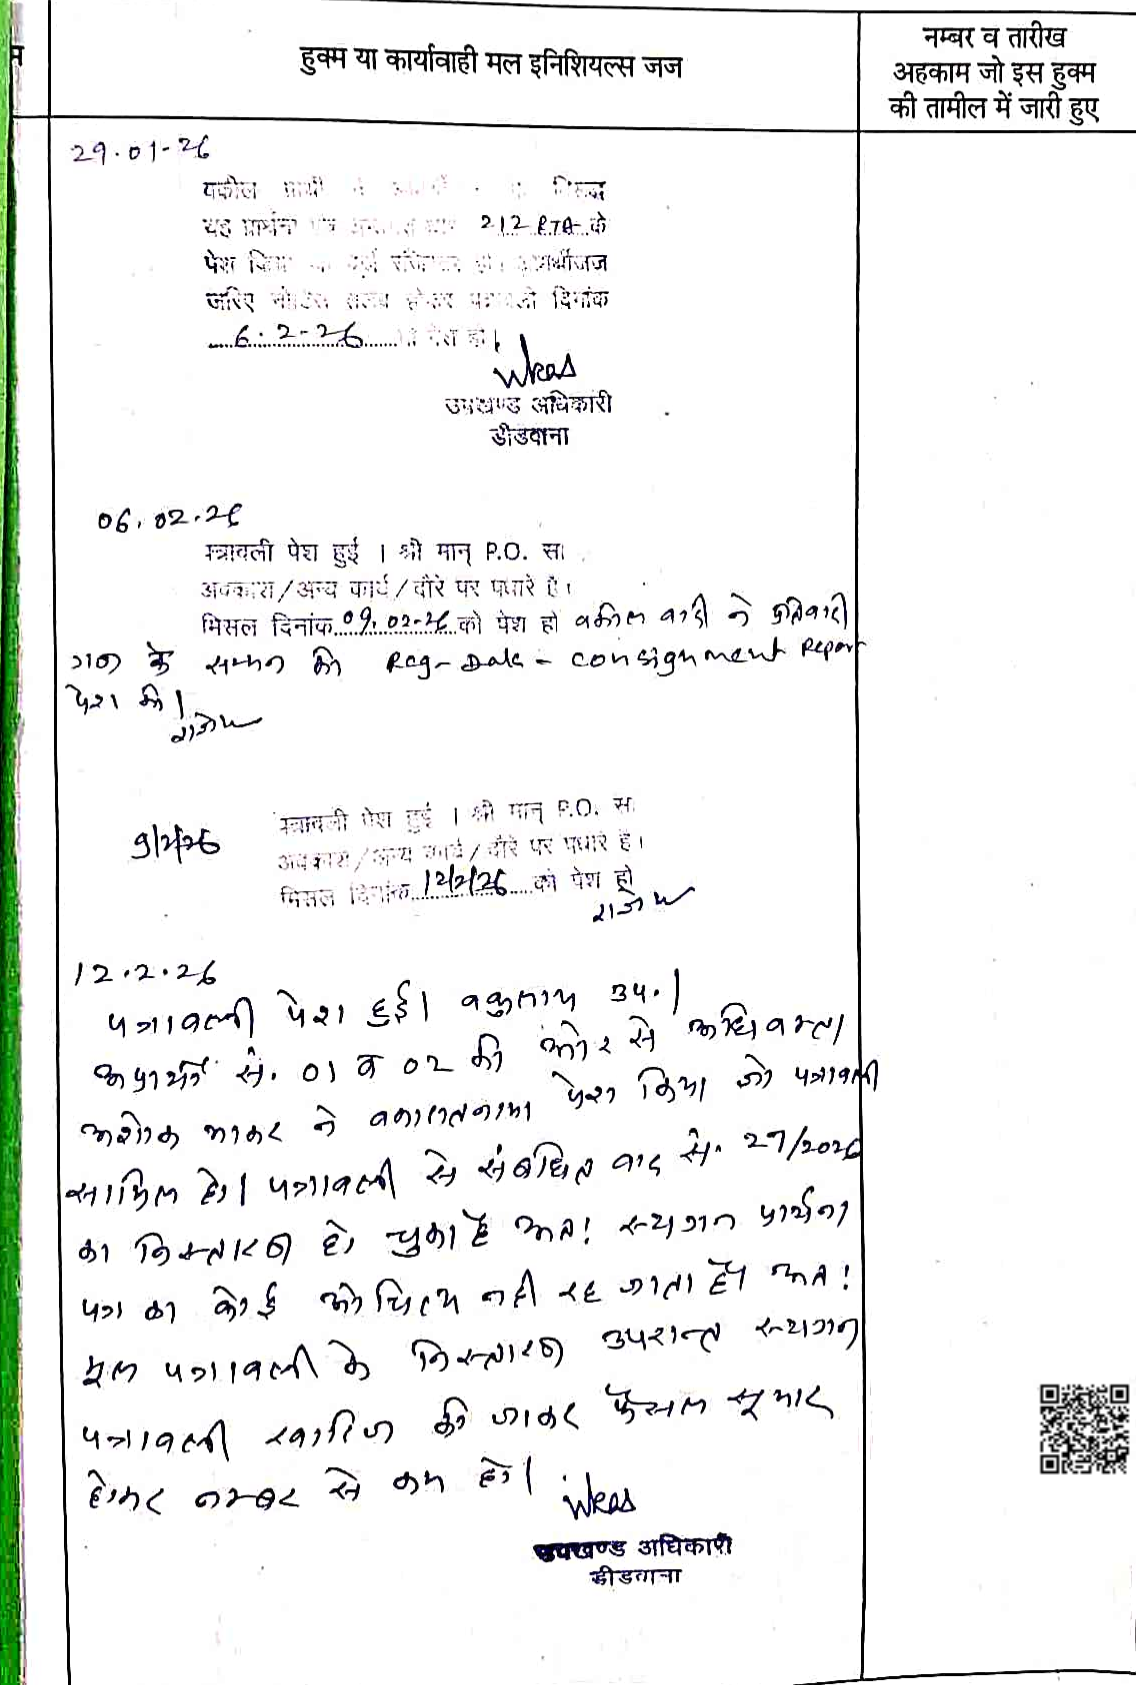 हुक्म या कार्यावाही मल इनिशियल्स जज
नम्बर व तारीख
अहकाम जो इस हुक्म
की तामील में जारी हुए
29.01-26
वकील प्रार्थी ने विरुद्ध
यह प्रार्थना पत्र 212 RTA के
पेश किया दर्ज रजिस्टर हो।
जरिए नोटिस तलब होकर पत्रावली दिनांक
6.2-26 को पेश हो।
उपखण्ड अधिकारी
डीडवाना
06.02.26
पत्रावली पेश हुई । श्री मान् P.O. सा
अवकाश/अन्य कार्य/दौरे पर पधारे है।
मिसल दिनांक 09.02-26 को पेश हो वकील वादी ने प्रतिवादी
गण के सम्मन की Reg- Dak - consignment Report
पेश की।
9/2/26
पत्रावली पेश हुई । श्री मान् P.O. सा
अवकाश/अन्य कार्य/दौरे पर पधारे है।
मिसल दिनांक 12/2/26 को पेश हो
12.2.26
पत्रावली पेश हुई। वकुलाय उप.।
अप्रार्थी सं. 01 व 02 की ओर से अधिवक्ता
अशोक ने वकालतनामा पेश किया जो पत्रावली
सामिल हो। पत्रावली से संबधित वाद सं. 27/2026
का निस्तारण हो चुका है अत! स्थगन प्रार्थना
पत्र का कोई औचित्य नही रह जाता है। अत!
मूल पत्रावली के निस्तारण उपरान्त स्थगन
पत्रावली खारिज की जाकर फैसल सूमार
होकर नम्बर से कम हो।
उपखण्ड अधिकारी
डीडवाना